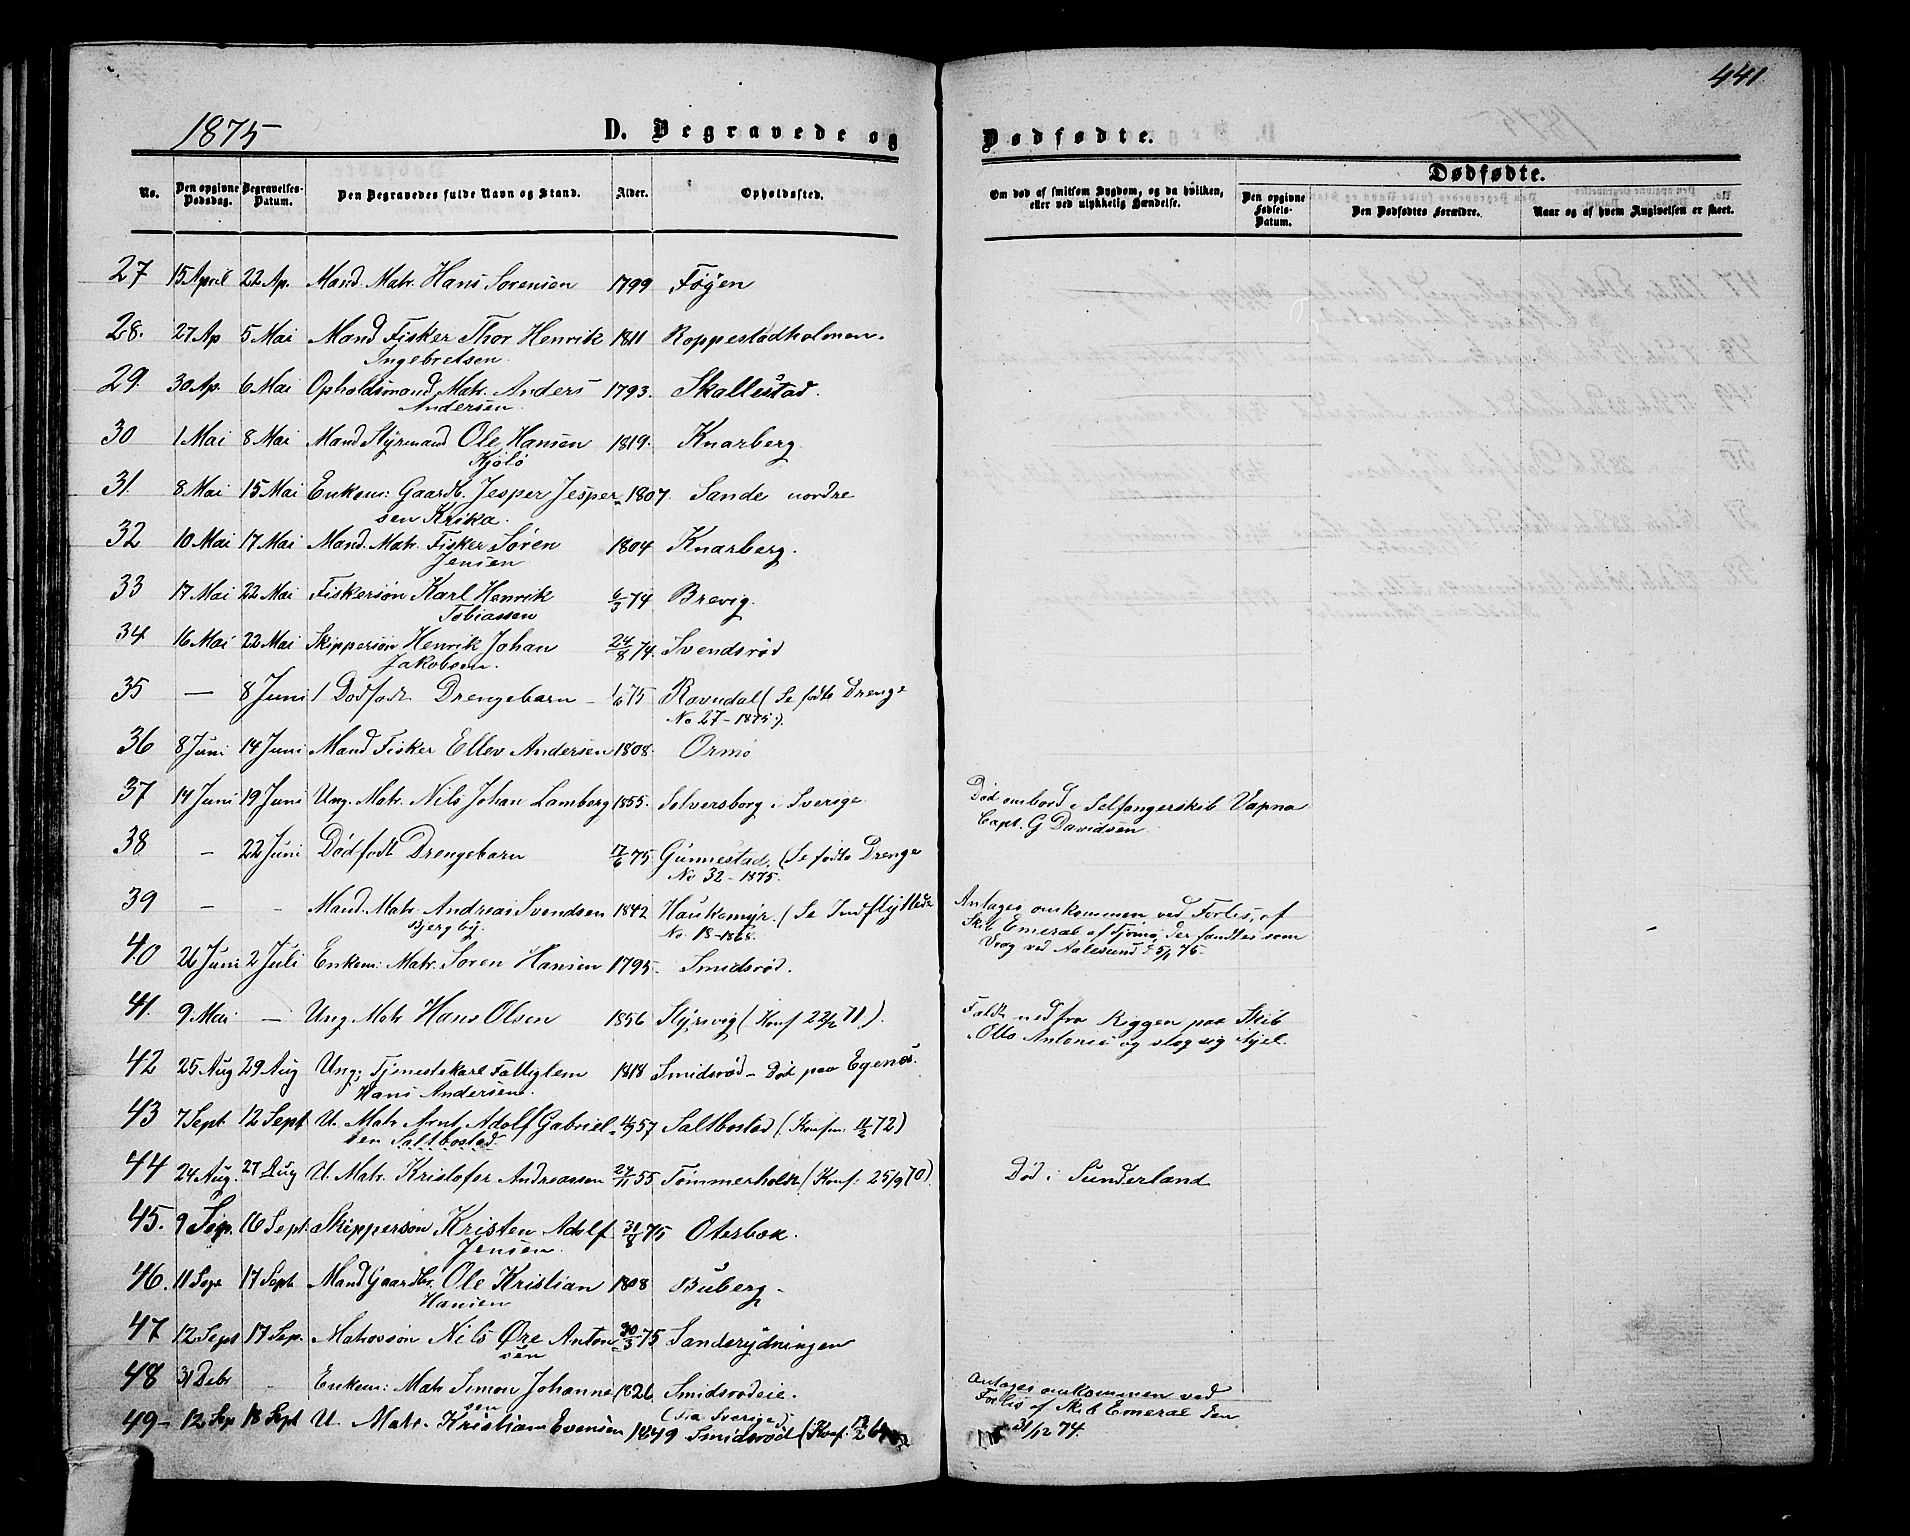 441
1875
D. Begravede og Dødfødte.
No. Den opgivne Dødsdag. Begravelses-Datum. Den Begravedes fulde Navn og Stand. Alder. Opholdssted. Om død af smitsom Sygdom, og da hvilken, eller ved ulykkelig Hændelse.
Dødfødte.
Den opgivne Fødsels-Datum. Den Dødfødtes Forældre. Naar og af hvem Angivelsen er skeet.
27 15 April 22 Ap. Mand. Matr. Hans Sørensen 1799 Føyen
28. 27 Ap 5 Mai Mand Fisker Thor Henrik 1811 Roppestadholmen.
Ingebretsen.
29. 30 Ap. 6 Mai Opholdsmand, Matr. Anders 1793. Skallestad.
Andersen.
30 1 Mai 8 Mai Mand Styrmand Ole Hansen 1819. Knarberg.
Kjølø
31. 8 Mai 15 Mai Enkem: Gaardb. Jesper Jesper- 1807. Sande nordre
sen Krika.
32 10 Mai 17 Mai Mand. Matr. Fisker Søren 1804 Knarberg.
Jensen
33 17 Mai 22 Mai Fiskersøn Karl Henrik 6/3 74 Brevig.
Tobiassen
34 16 Mai 22 Mai Skippersøn Henrik Johan 24/8 74. Svendsrød
Jakobsen.
35 — 8 Juni 1 Dødfødt Drengebarn – 1/6 75 Ravndal (Se fødte Drenge
No 27 – 1875).
36 8 Juni 14 Juni Mand Fisker Ellev Andersen 1808. Ormø
37 14 Juni 19 Juni Ung. Matr. Nils Johan Lamberg 1855. Sølversborg i Sverige. Død ombord i Selfangerskib Vapna
Capt. G Davidsen.
38 – 22 Juni Dødfødt Drengebarn 17/6 75 Gunnestad. (Se fødte Drenge
No 32 – 1875.
39 – – Mand. Matr Andreas Svendsen 1842 Haukemyr. (Se Indflyttede Antages omkommen ved Forlis, af
Bjergby. No. 18 – 1868. Skib Emeral af Tjømø, der fandtes som
Vrag ved Aalesund 5/1 75.
40 26 Juni 2 Juli Enkem: Matr. Søren Hansen 1795. Smidsrød.
41. 9 Mai — Ung Matr Hans Olsen 1856 Styrsvig (Konf 22/2 71). Faldt ned fra Riggen paa Skib
Otto Antonie og slog sig ihjel.
42 25 Aug 29 Aug Ung; Tjenestekarl Fattiglem 1818 Smidsrød – Død paa Egenæs.
Hans Andersen.
43 7 Sept 12 Sept U. Matr Arnt Adolf Gabriel- 57 Saltbostad (Konfm: 72)
sen Saltbostad.
44 24 Aug. 27 Aug U. Matr. Kristofer Andreassen 24/11 55 Tømmerholt (Konf: 25/9 70). Død i Sunderland
45. 9 Sep. 16 Sept. Skippersøn Kristen Adolf 31/8 75 Oterbæk.
Jensen.
46. 11 Sept 17 Sept. Mand Gaardbr. Ole Kristian 1808 Buberg –
Hansen
47 12 Sept 17 Sep. Matrossøn Nils Øre Anton- 30/3 75 Sanderydningen
sen
48 31 Debr – Enkem: Matr Simon Johanne- 1826 Smidsrødeie. Antages omkommen ved
sen (Fra Sverige) Forlis af Skib Emeral den
31/12 74.
49 – 12 Sep 18 Sept U. Matr. Kristian Evensen 1849 Smidsrød (Konf: